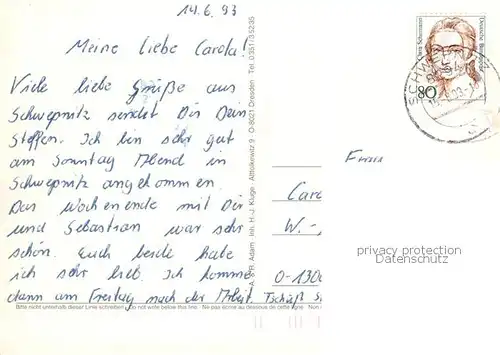 14.6.93
Meine liebe Carola!
Viele liebe Grüße aus
Schwepnitz sendet Dir Dein
Steffen. Ich bin sehr gut
am Sonntag Abend in
Schwepnitz angekommen.
Das Wochenende mit Dir
und Sebastian war sehr
schön. Euch beide habe
ich sehr lieb. Ich komme
dann am Freitag nach der Arbeit. Tschüß
Bitte nicht unterhalb dieser Linie schreiben Do not write below this line Ne pas écrire au dessous de cette ligne
Inh. H.-J. Kluge · AltnaIkwitz 9 · O-8021 Dresden · Tel. 0351/35235
Clara Schumann
Deutsche Bundespost
80
Frau
Caro
W.-
O-130
privacy protection
Datenschutz